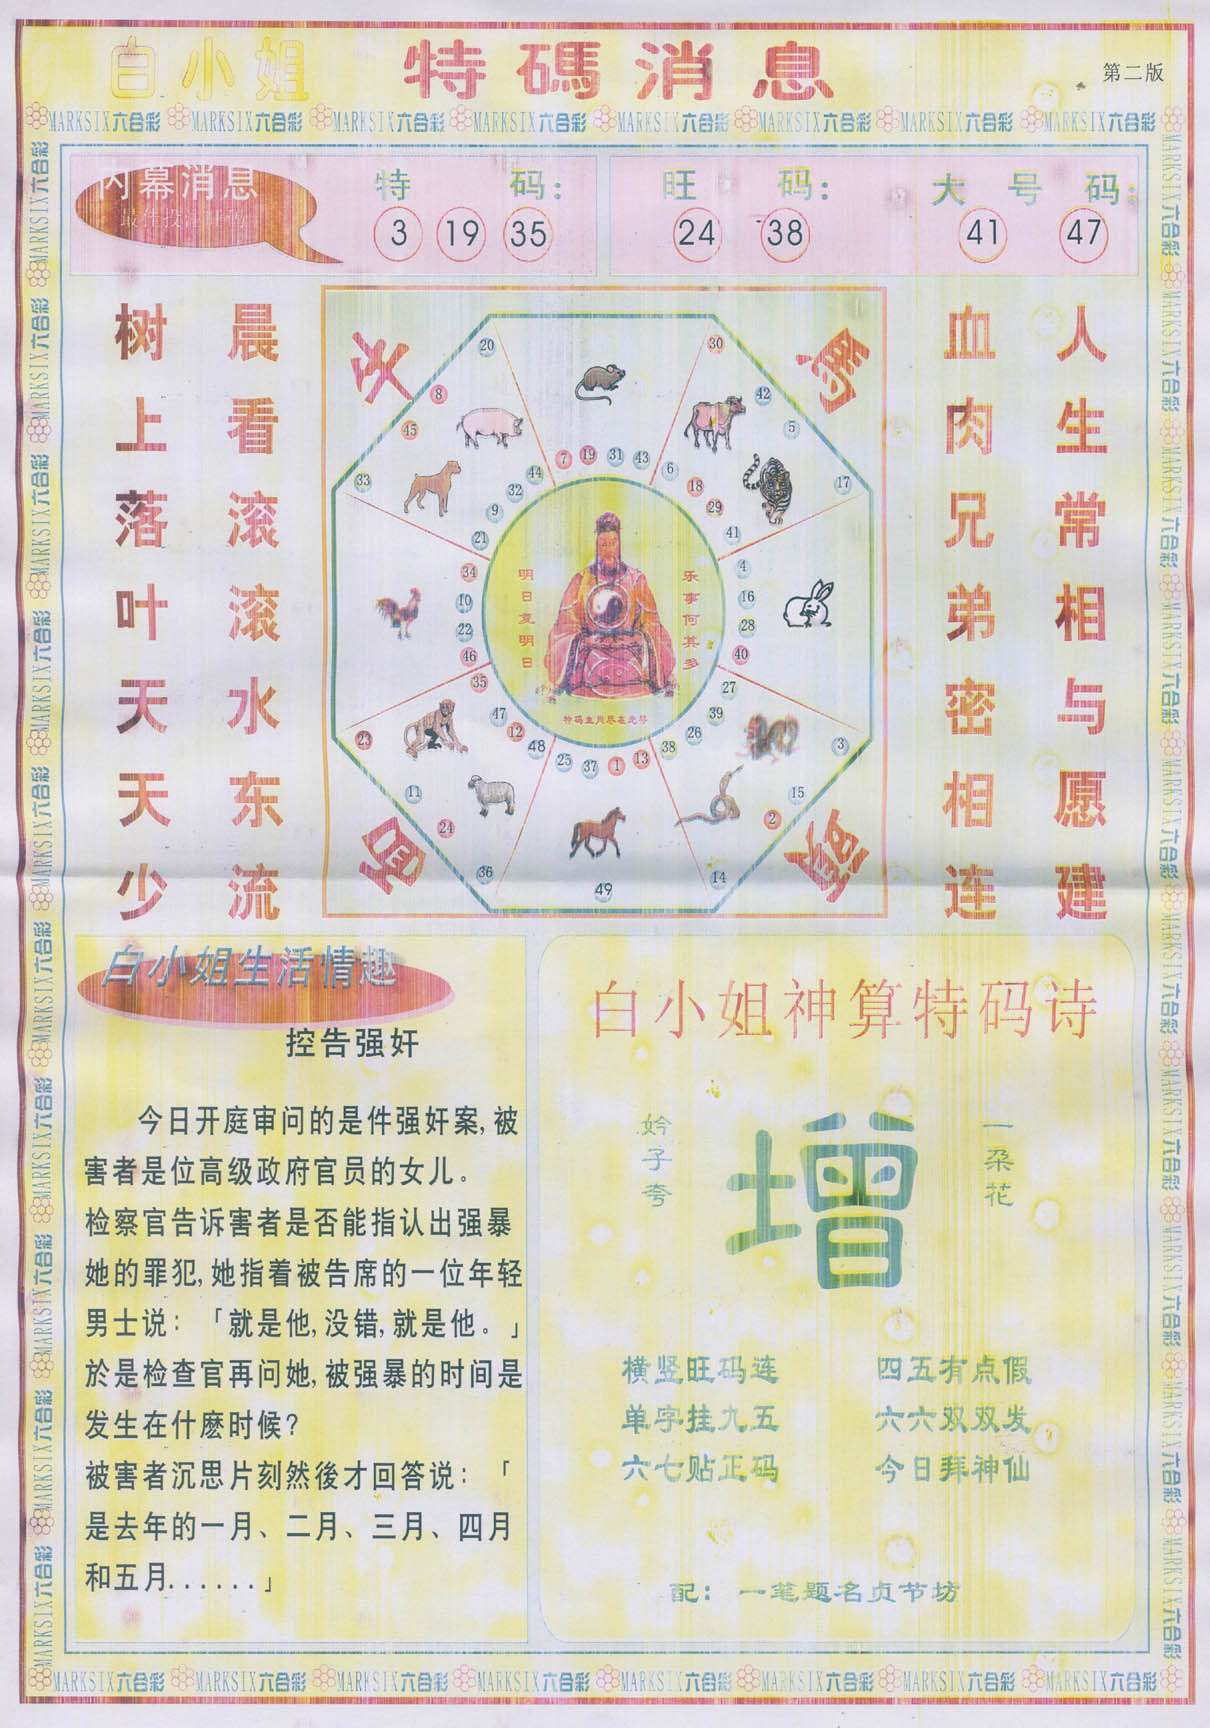 白小姐 特碼消息
第二版
MARKSIX六合彩 MARKSIX六合彩 MARKSIX六合彩 MARKSIX六合彩 MARKSIX六合彩 MARKSIX六合彩 MARKSIX六合彩 MARKSIX六合彩
内幕消息
特码:
3 19 35
旺码:
24 38
大号码:
41 47
树上落叶天天少
晨看滚滚水东流
血肉兄弟密相连
人生常相与愿建
20 30
8 42
45 5
33 17
44 7 19 31 43 6
32 18
9 29
21 41
34 4
10 16
22 28
46 40
35 27
47 39
12 26
48 25 37 1 13 38
23 3
11 15
24 2
36 49 14
明日复明日
乐事何其多
特码生肖尽在此号
白小姐生活情趣
控告强奸
今日开庭审问的是件强奸案,被
害者是位高级政府官员的女儿。
检察官告诉害者是否能指认出强暴
她的罪犯,她指着被告席的一位年轻
男士说:「就是他,没错,就是他。」
於是检查官再问她,被强暴的时间是
发生在什麽时候?
被害者沉思片刻然後才回答说:「
是去年的一月、二月、三月、四月
和五月......」
白小姐神算特码诗
妗子夸
增
一朵花
横竖旺码连 四五有点假
单字挂九五 六六双双发
六七贴正码 今日拜神仙
配: 一笔题名贞节坊
MARKSIX六合彩 MARKSIX六合彩 MARKSIX六合彩 MARKSIX六合彩 MARKSIX六合彩 MARKSIX六合彩 MARKSIX六合彩 MARKSIX六合彩